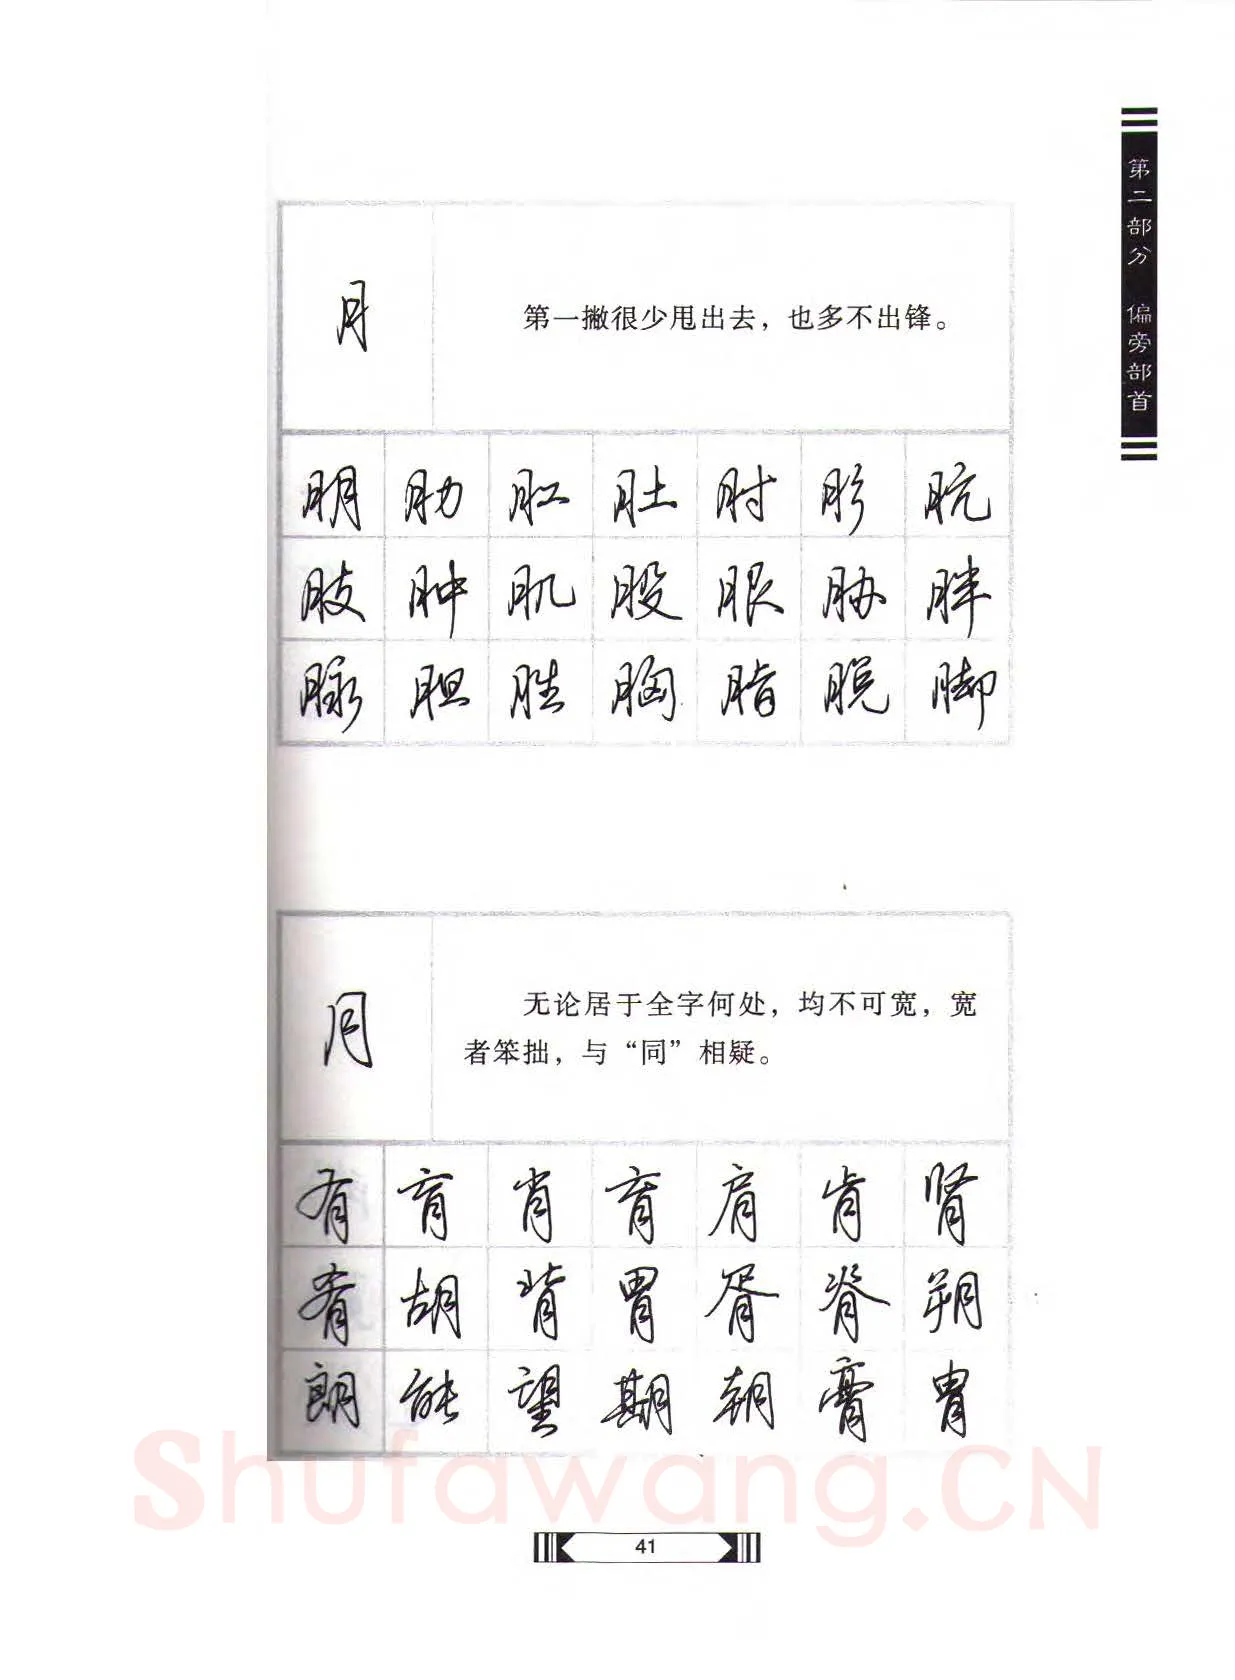 第二部分 偏旁部首
月
第一撇很少甩出去，也多不出锋。
朋 肋 肛 肚 肘 肜 肮
肢 肿 肌 股 服 胁 胖
脉 胆 胜 胸 脂 脱 脚
月
无论居于全字何处，均不可宽，宽
者笨拙，与“同”相疑。
有 肓 肖 育 肩 肯 肾
肴 胡 背 胃 胥 脊 朔
朗 能 望 期 朝 膏 胄
Shufawang.CN
41